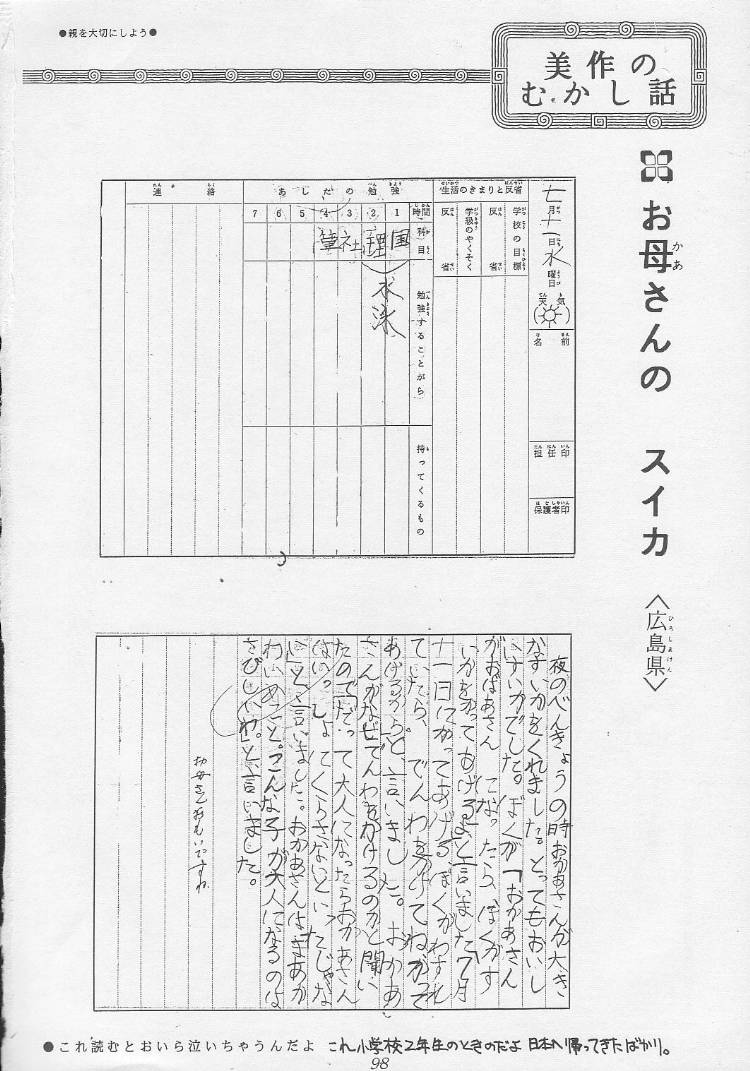 ●親を大切にしよう●
美作の
むかし話
お母さんの スイカ
かあ
〈広島県〉
ひろしまけん
七月十一日水曜日
天気
名前
担任印
保護者印
生活のきまりと反省
学校の目標
反省
学級のやくそく
反省
あしたの勉強
時間 1 2 3 4 5 6 7
科目
国 理 社
勉強することがら
水泳
持ってくるもの
連絡
夜のべんきょうの時おかあさんが大き
なすいかをくれました。とってもおいし
いすいかでした。ぼくが「おかあさん
がおばあさんになったら、ぼくがす
いかをかってあげるよ」と言いました7月
十一日にかってあげるぼくがわすれ
ていたら、でんわをかけてね、かって
あげるからと、言いました。おかあ
さんがなぜでんわをかけるのかと聞い
たので「だって大人になったらおかあさん
はいっしょにくらさないといったじゃな
い」と言いました。おかあさんは「まあか
わいいこと。こんな子が大人になるのは
さびしいわ。」と、言いました。
お母さんおもいですね
●これ読むとおいら泣いちゃうんだよ これ小学校2年生のときのだよ 日本へ帰ってきたばかり。
98